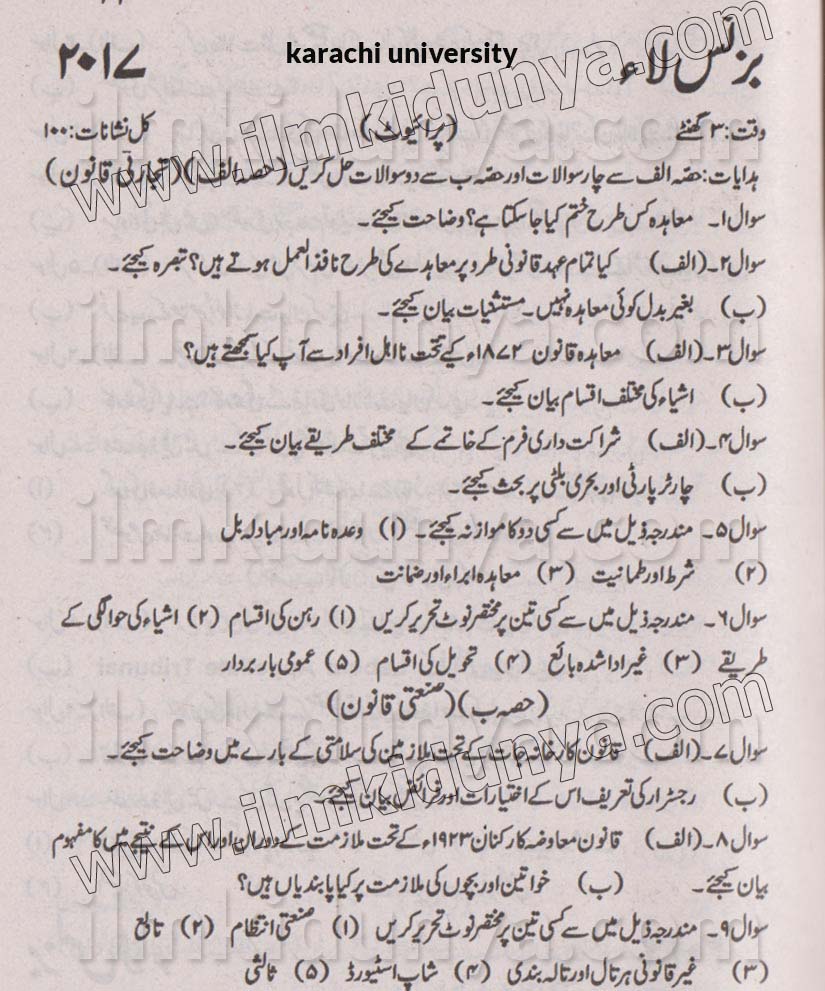 karachi university
بزنس لاء ۲۰۱۷
وقت: ۳ گھنٹے (پرائیوٹ) کل نشانات: ۱۰۰
ہدایات: حصّہ الف سے چار سوالات اور حصّہ ب سے دو سوالات حل کریں (حصہ الف) (تجارتی قانون)
سوال ۱۔ معاہدہ کس طرح ختم کیا جا سکتا ہے؟ وضاحت کیجئے۔
سوال ۲۔ (الف) کیا تمام عہد قانونی طرو پر معاہدے کی طرح نافذ العمل ہوتے ہیں؟ تبصرہ کیجئے۔
(ب) بغیر بدل کوئی معاہدہ نہیں۔ مستثنیات بیان کیجئے۔
سوال ۳۔ (الف) معاہدہ قانون ۱۸۷۲ء کیے تحت نا اہل افراد سے آپ کیا سمجھتے ہیں؟
(ب) اشیاء کی مختلف اقسام بیان کیجئے۔
سوال ۴۔ (الف) شراکت داری فرم کے خاتمے کے مختلف طریقے بیان کیجئے۔
(ب) چارٹر پارٹی اور بحری بلٹی پر بحث کیجئے۔
سوال ۵۔ مندرجہ ذیل میں سے کسی دو کا موازنہ کیجئے۔ (۱) وعدہ نامہ اور مبادلہ بل
(۲) شرط اور طمانیت (۳) معاہدہ ابراء اور ضمانت
سوال ۶۔ مندرجہ ذیل میں سے کسی تین پر مختصر نوٹ تحریر کریں (۱) رہن کی اقسام (۲) اشیاء کی حوالگی کے
طریقے (۳) غیر ادا شدہ بائع (۴) تحویل کی اقسام (۵) عمومی باربردار
(حصہ ب) (صنعتی قانون)
سوال ۷۔ (الف) قانون کارخانہ جات کے تحت ملازمین کی سلامتی کے بارے میں وضاحت کیجئے۔
(ب) رجسٹرار کی تعریف اس کے اختیارات اور فرائض بیان کیجئے۔
سوال ۸۔ (الف) قانون معاوضہ کارکنان ۱۹۲۳ء کے تحت ملازمت کے دوران اور اس کے نتیجے میں کا مفہوم
بیان کیجئے۔ (ب) خواتین اور بچوں کی ملازمت پر کیا پابندیاں ہیں؟
سوال ۹۔ مندرجہ ذیل میں سے کسی تین پر مختصر نوٹ تحریر کریں (۱) صنعتی انتظام (۲) تابع
(۳) غیر قانونی ہرتال اور تالہ بندی (۴) شاپ اسٹیورڈ (۵) ثالثی
www.ilmkidunya.com
www.ilmkidunya.com
ilmkidunya.com
ilmkidunya.com
ilmkidunya.com
ilmkidunya.com
ilmkidunya.com
ilmkidunya.com